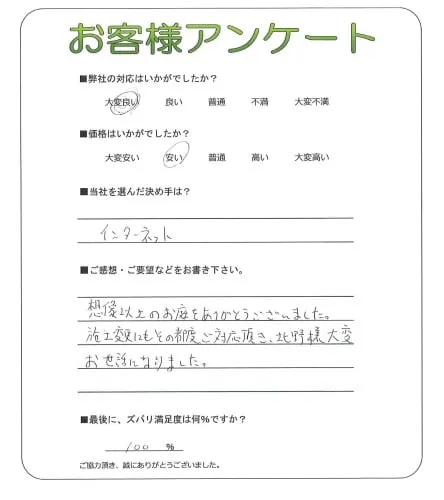 お客様アンケート
■弊社の対応はいかがでしたか？
大変良い 良い 普通 不満 大変不満
■価格はいかがでしたか？
大変安い 安い 普通 高い 大変高い
■当社を選んだ決め手は？
インターネット
■ご感想・ご要望などをお書き下さい。
想像以上のお庭をありがとうございました。
施工変更にもその都度ご対応頂き、北野様大変
お世話になりました。
■最後に、ズバリ満足度は何%ですか？
100 %
ご協力頂き、誠にありがとうございました。